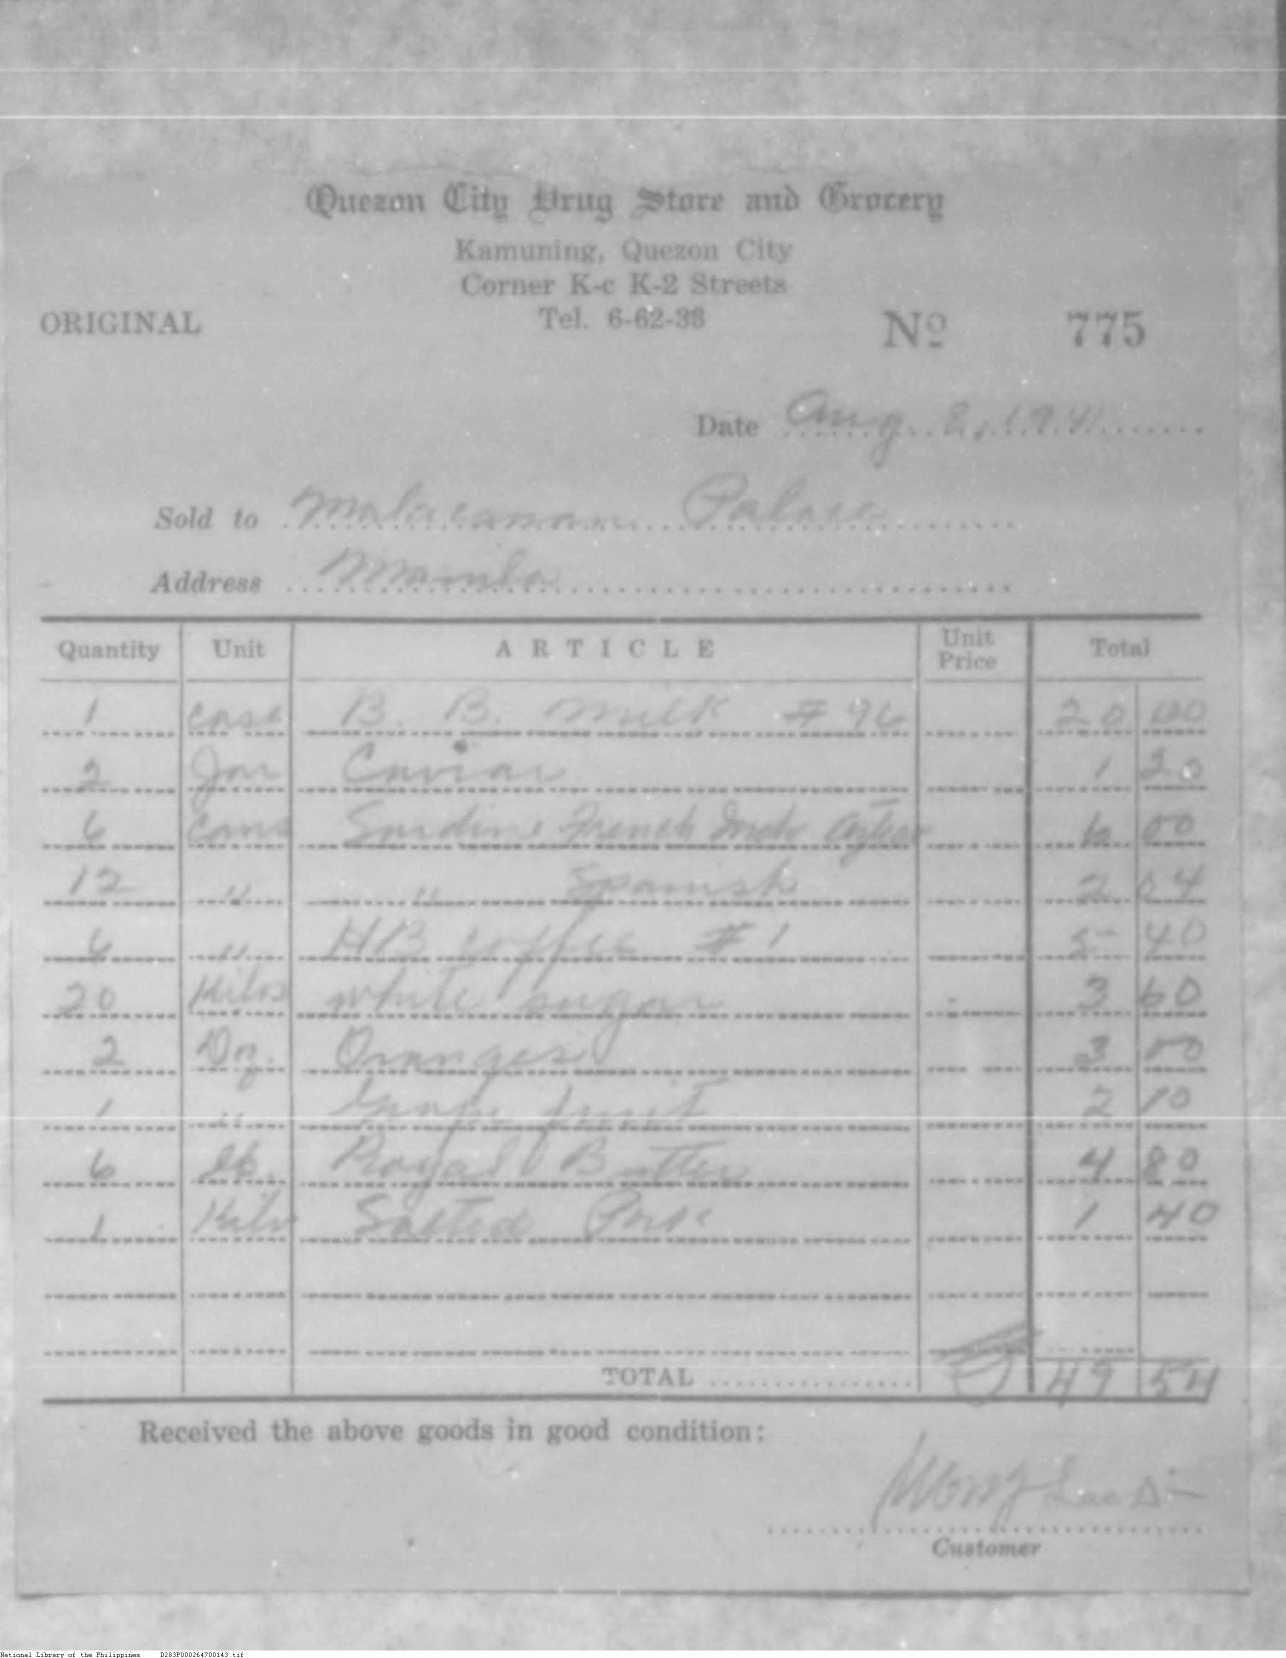 Quezon City Drug Store and Grocery
Kamuning, Quezon City
Corner K-c K-2 Streets
Tel. 6-62-38
ORIGINAL
No 775
Date Aug. 8, 1941
Sold to Malacanan Palace
Address Manila
Quantity Unit ARTICLE Unit Price Total
1 case B. B. Milk # 96 20 00
2 Jar Caviar 1 20
6 cans Sardine French 6 00
12 " " Spanish 2 04
6 " HB coffee # 1 5 40
20 Kilos white sugar 3 60
2 Dz. Oranges 3 00
1 " Grape fruit 2 10
6 lb. Royal Butter 4 80
1 Kilo Salted Pork 1 40
TOTAL 49 54
Received the above goods in good condition:
Customer
National Library of the Philippines D283P000264700143.tif